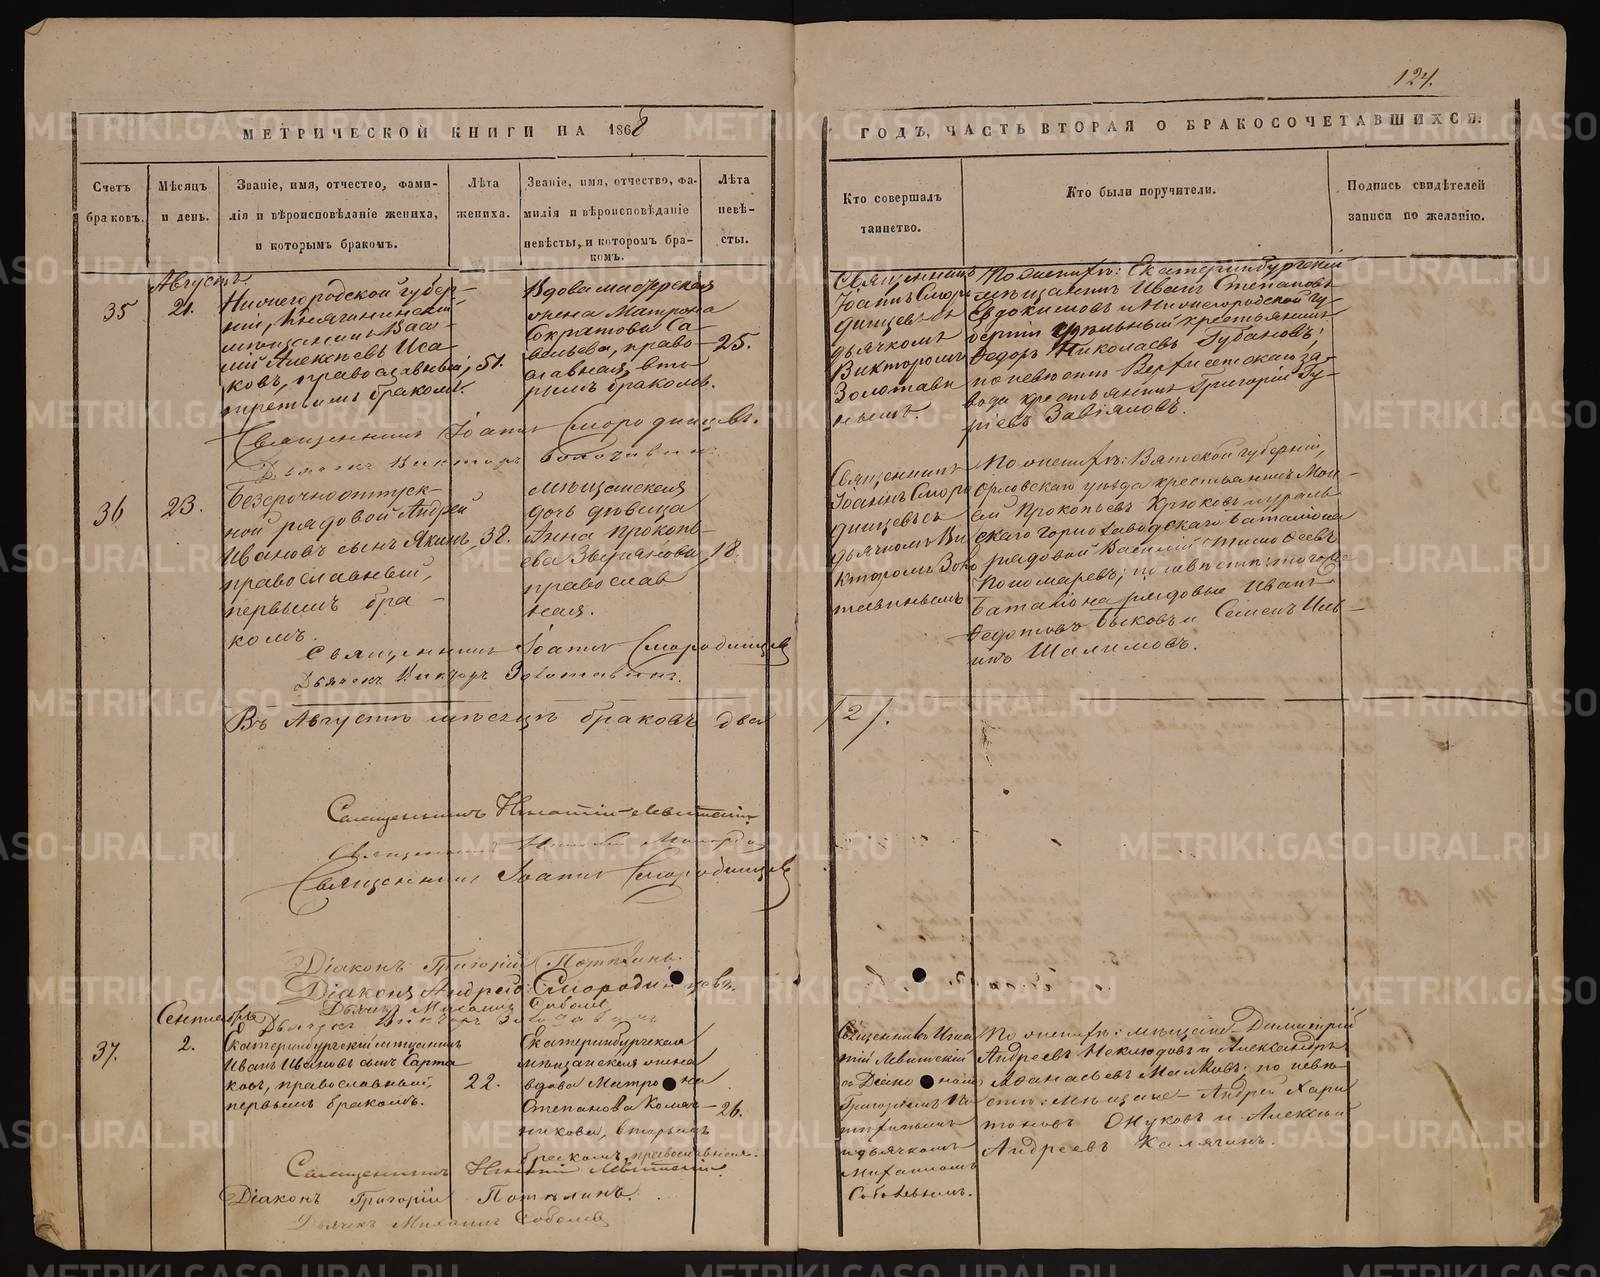 124.
МЕТРИЧЕСКОЙ КНИГИ НА 1868
ГОДЪ, ЧАСТЬ ВТОРАЯ О БРАКОСОЧЕТАВШИХСЯ.
Счетъ браковъ.
Мѣсяцъ и день.
Званіе, имя, отчество, фами-
лія и вѣроисповѣданіе жениха,
и которымъ бракомъ.
Лѣта жениха.
Званіе, имя, отчество, фа-
милія и вѣроисповѣданіе
невѣсты, и котором бра-
комъ.
Лѣта невѣ-
сты.
Кто совершалъ
таинство.
Кто были поручители.
Подпись свидѣтелей
записи по желанію.
Августъ
35
21.
Нижегородской губер-
ніи, Княгининскій
мѣщанинъ Васи-
лій Алексѣевъ Иса-
ковъ, православный,
третьимъ бракомъ.
51.
Вдова мастерская
жена Матрона
Сократова Са-
вельева, право-
славная, вто-
рымъ бракомъ.
25.
Священникъ
Іоаннъ Сморо-
динцевъ съ
дьячкомъ
Викторомъ
Золотави-
нымъ.
По женихѣ: Екатеринбургскій
мѣщанинъ Иванъ Степановъ
Евдокимовъ и Нижегородской гу-
берніи удѣльный крестьянинъ
Ѳедоръ Николаевъ Губановъ;
по невѣстѣ Верхисетскаго за-
вода крестьянинъ Григорій Гу-
рiевъ Завьяловъ.
Священникъ Іоаннъ Смородинцевъ.
Дьячекъ Викторъ Золотавинъ.
36
23.
Безсрочноотпуск-
ной рядовой Андрей
Ивановъ сынъ Якинъ,
православный,
первымъ бра-
комъ.
38.
мѣщанская
дочь дѣвица
Анна Прокопь-
ева Звѣрякова
православ
ная.
18.
Священникъ
Іоаннъ Сморо
динцевъ съ
дьячкомъ Ви
кторомъ Золо
тавинымъ
По женихѣ: Вятской губерніи,
Орловскаго уѣзда крестьянинъ Мои-
сей Прокопьевъ Крюковъ и Ураль
скаго горнозаводскаго баталіона
рядовой Василій Тимоѳеевъ
Пономаревъ; по невѣстѣ: тогоже
баталіона рядовые Иванъ
Ѳедотовъ Быковъ и Семенъ Иль-
инъ Шалимовъ.
Священникъ Іоаннъ Смородинцевъ
Дьячекъ Викторъ Золотавинъ.
Въ Августѣ мѣсяцѣ браковъ два /2/.
Священникъ Игнатій Левитскій
Священникъ
Священникъ Іоаннъ Смородинцевъ
Діаконъ Григорій Потѣхинъ.
Діаконъ Андрей Смородинцевъ.
Дьячекъ Михаилъ Соболевъ
Дьячекъ Викторъ Золотавинъ
Сентябрь
37.
2.
Екатеринбургскій мѣщанинъ
Иванъ Ивановъ сынъ Сарта
ковъ, православный,
первымъ бракомъ.
22.
Екатеринбургская
мѣщанская жена
вдова Матрона
Степанова Коляч-
никова, вторымъ
бракомъ, православная.
26.
Священникъ Игна
тій Левитскій
съ Діакономъ
Григоріемъ По
тѣхинымъ
и дьячкомъ
Михаиломъ
Соболевымъ.
По женихѣ: мѣщане Димитрій
Андреевъ Неклюдовъ и Александръ
Аѳанасьевъ Малковъ; по невѣ
стѣ: мѣщане Андрей Хари
тоновъ Онуковъ и Алексѣй
Андреевъ Калягинъ.
Священникъ Игнатій Левитскій
Діаконъ Григорій Потѣхинъ.
Дьячекъ Михаилъ Соболевъ